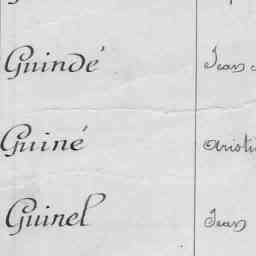 Guindé Jean
Guiné
Guinel Jean